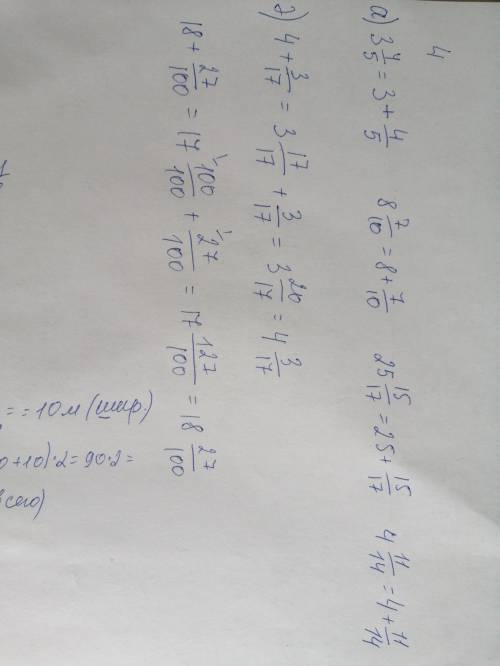 4
а) 3 4/5 = 3 + 4/5   8 7/10 = 8 + 7/10   25 15/17 = 25 + 15/17   4 11/14 = 4 + 11/14
д) 4 + 3/17 = 3 17/17 + 3/17 = 3 20/17 = 4 3/17
18 + 27/100 = 17 100/100 + 27/100 = 17 127/100 = 18 27/100
= = 10 м (шир.)
0 + 10) · 2 = 90 · 2 =